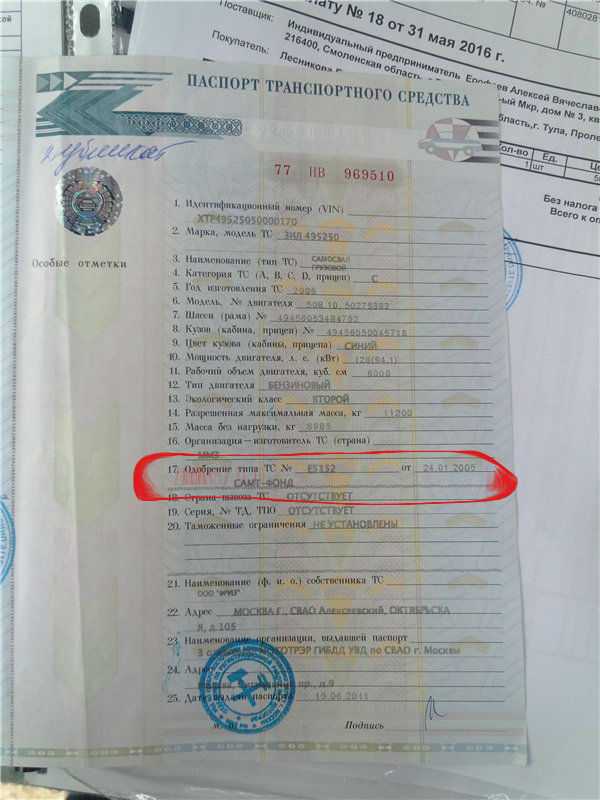 Поставщик:
Индивидуальный предприниматель Ерофеев Алексей Вячеслав
216400, Смоленская область
Покупатель:
лату № 18 от 31 мая 2016 г.
ный Мкр, дом № 3, кв
область, г. Тула, Проле
Кол-во Ед. Це
1 шт
Без налога
Всего к оп
ПАСПОРТ ТРАНСПОРТНОГО СРЕДСТВА
дубликат
77 НВ 969510
Особые отметки
1. Идентификационный номер (VIN)
XTP49525050000170
2. Марка, модель ТС ЗИЛ 495250
3. Наименование (тип ТС) САМОСВАЛ
ГРУЗОВОЙ
4. Категория ТС (А, В, С, D, прицеп) С
5. Год изготовления ТС 2005
6. Модель, № двигателя 508.10, 50275392
7. Шасси (рама) № 49456053484752
8. Кузов (кабина, прицеп) № 49456050045718
9. Цвет кузова (кабины, прицепа) СИНИЙ
10. Мощность двигателя, л. с. (кВт) 128(94.1)
11. Рабочий объем двигателя, куб. см 6000
12. Тип двигателя БЕНЗИНОВЫЙ
13. Экологический класс ВТОРОЙ
14. Разрешенная максимальная масса, кг 11200
15. Масса без нагрузки, кг 5985
16. Организация—изготовитель ТС (страна)
ММЗ
17. Одобрение типа ТС № Е5152 от 24.01.2005
САМТ-ФОНД
18. Страна вывоза ТС ОТСУТСТВУЕТ
19. Серия, № ТД, ТПО ОТСУТСТВУЕТ
20. Таможенные ограничения НЕ УСТАНОВЛЕНЫ
21. Наименование (ф. и. о.) собственника ТС
ООО
22. Адрес МОСКВА Г., СВАО Алексеевский, ОКТЯБРЬСКА
Я, д.105
23. Наименование организации, выдавшей паспорт
МОТОТРЭР ГИБДД УВД по СВАО г. Москвы
24. Адрес
пр., д.9
25. Дата выдачи паспорта 15.06.2011
М. П. Подпись